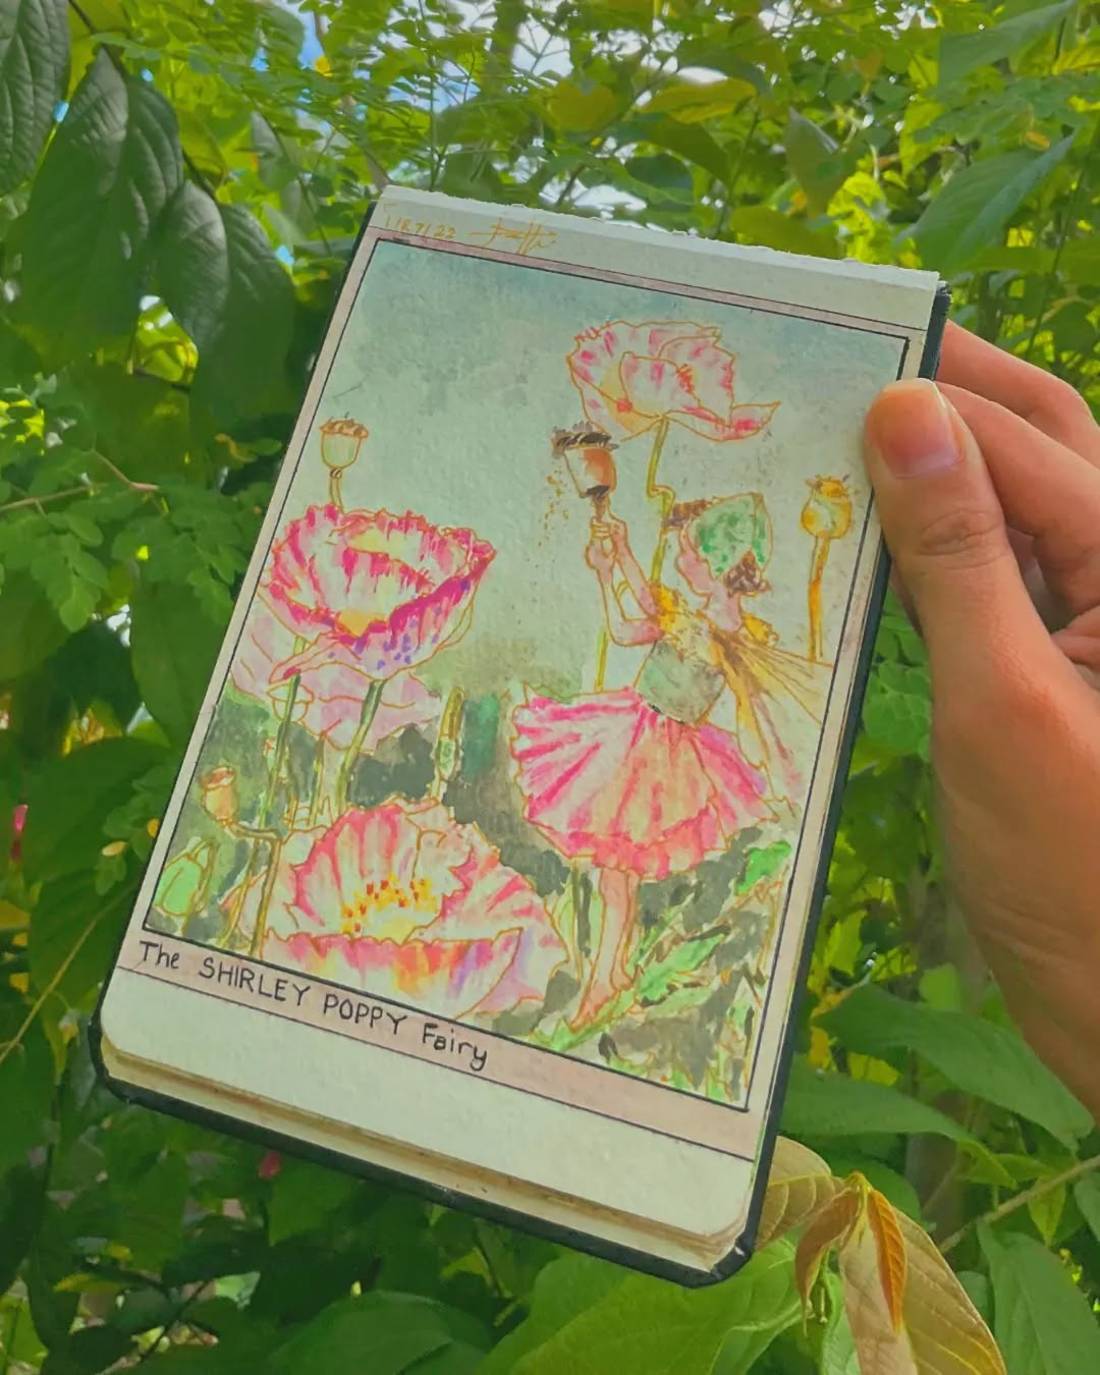 The SHIRLEY POPPY Fairy